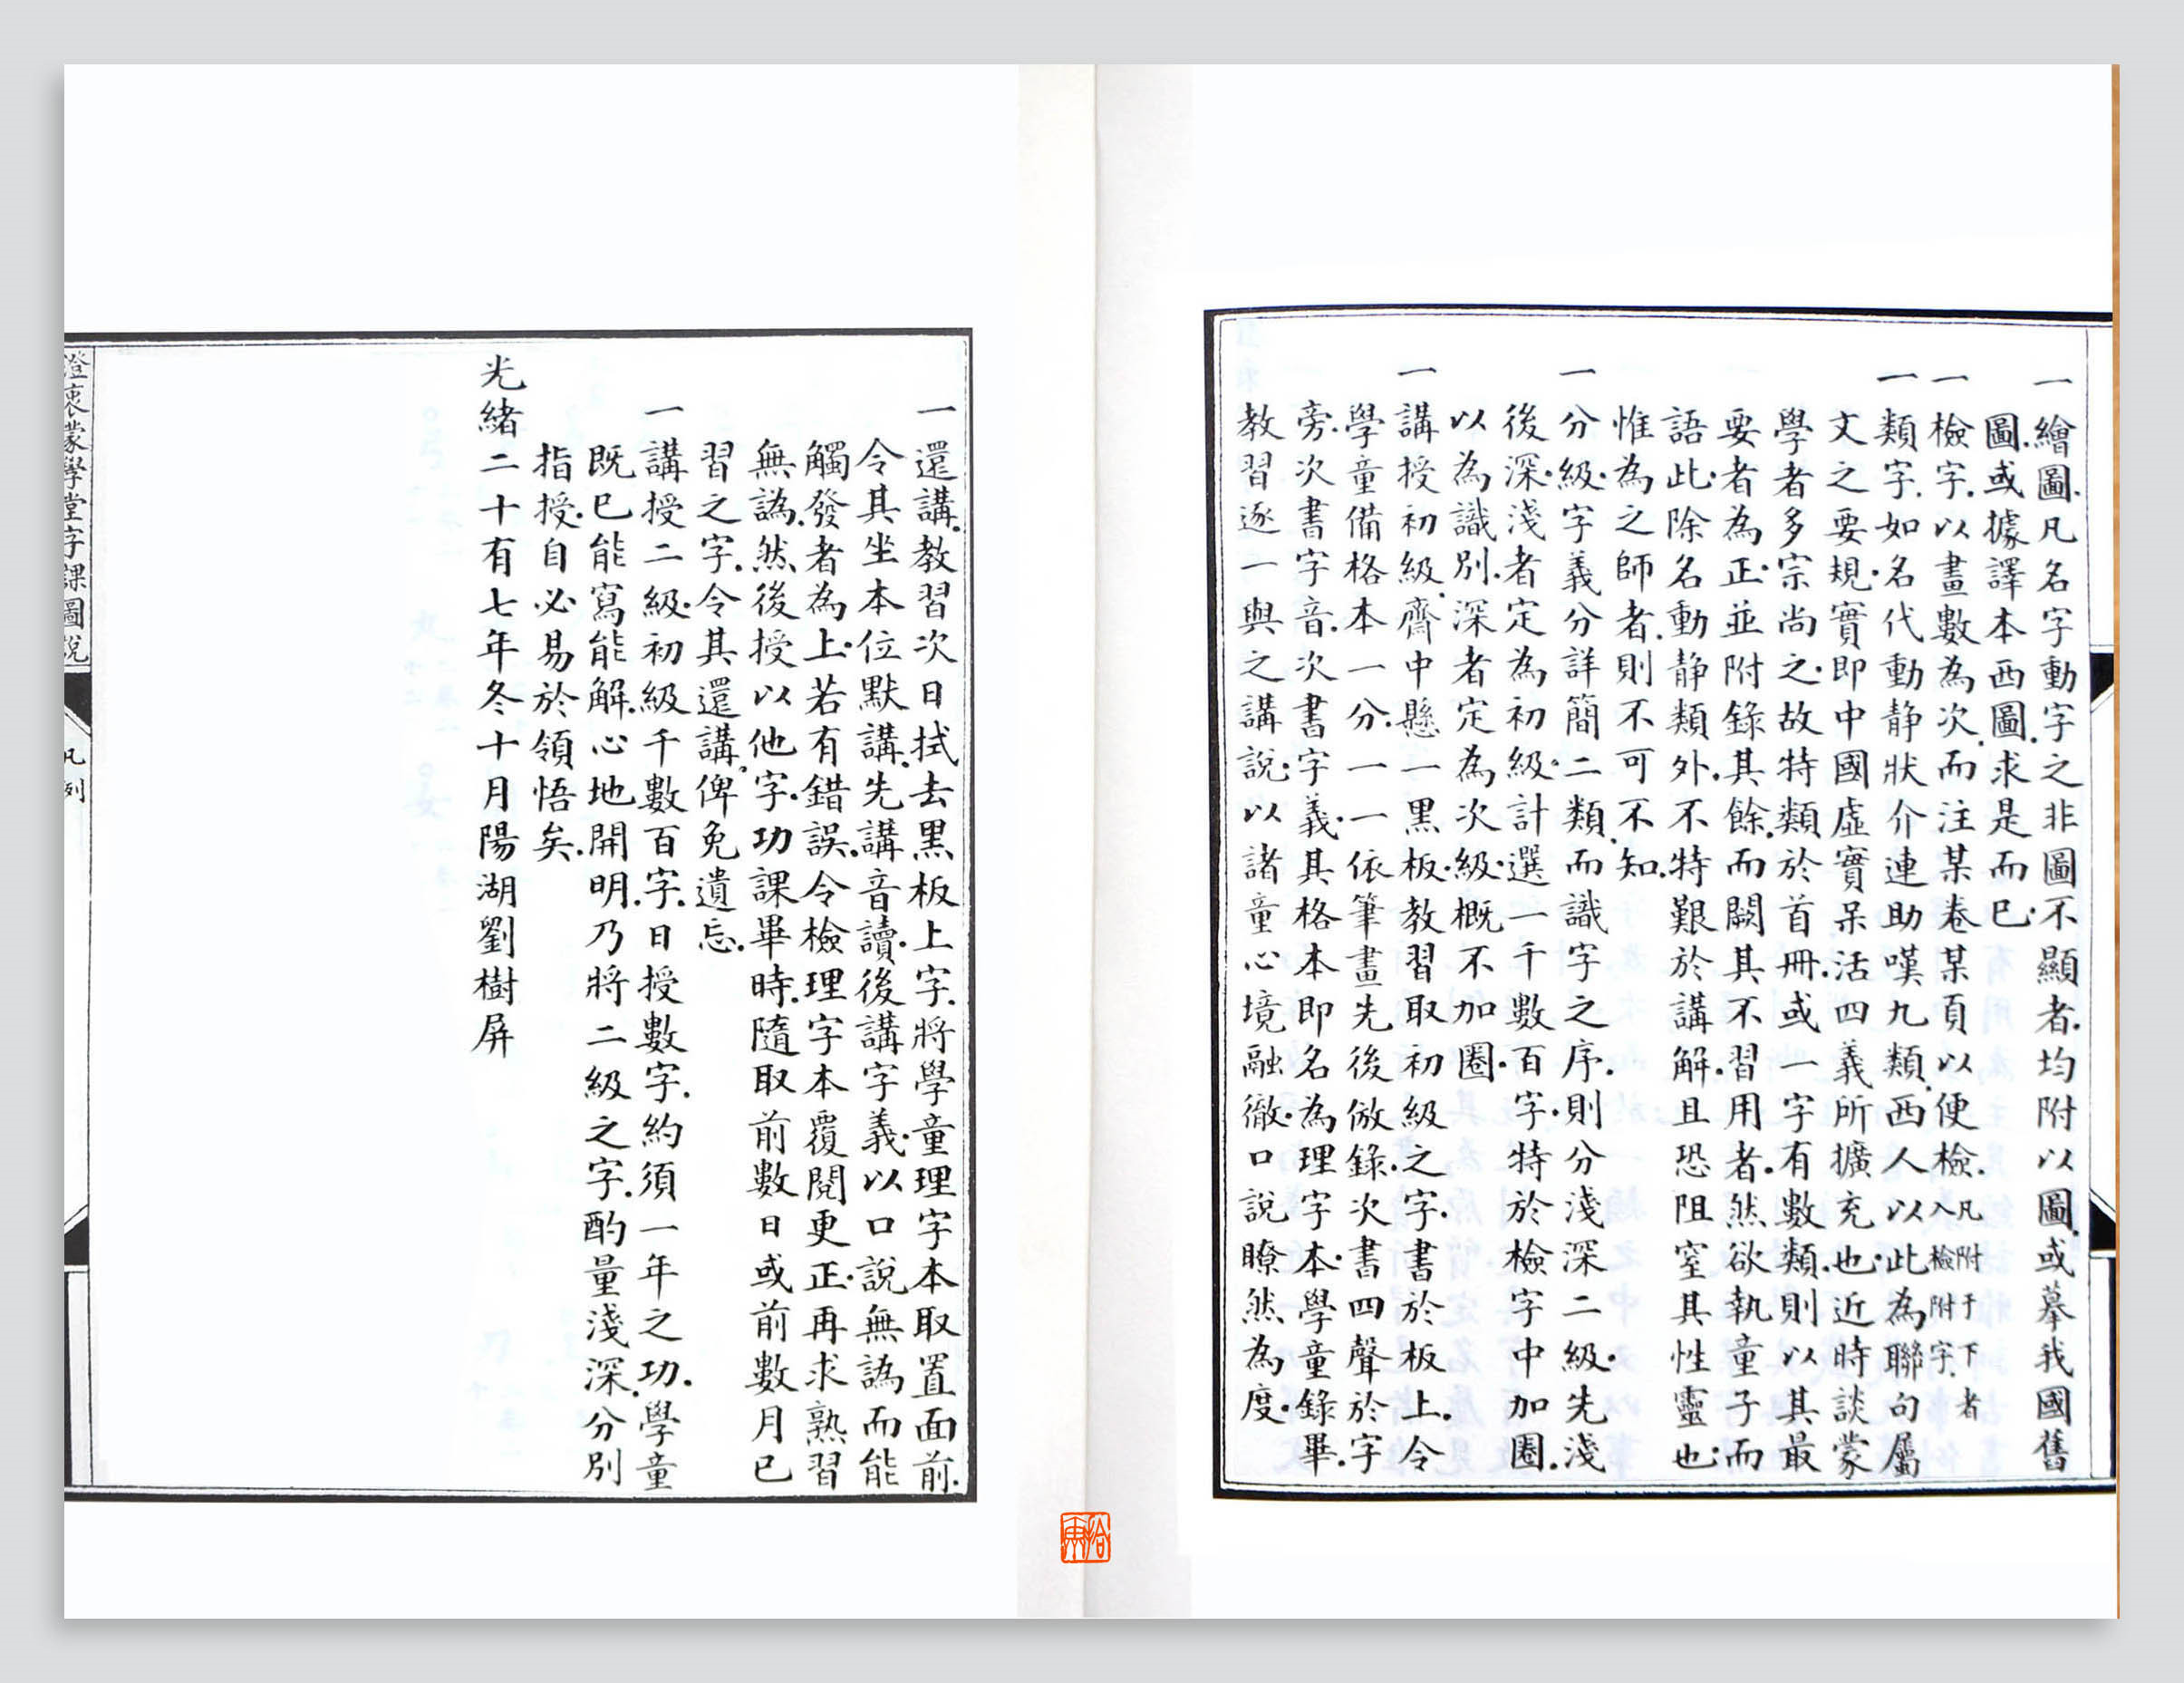 一繪圖.凡名字動字之非圖不顯者.均附以圖.或摹我國舊
圖.或據譯本西圖.求是而已.
一檢字.以畫數為次.而注某卷某頁以便檢.凡附于下者入檢附字.
一類字.如名代動靜狀介連助嘆九類.西人以此為聯句屬
文之要規.實即中國虛實呆活四義所擴充也.近時談蒙
學者多宗尚之.故特類於首冊.或一字有數類.則以其最
要者為正.並附錄其餘.而闕其不習用者.然欲執童子而
語此.除名動靜類外.不特艱於講解.且恐阻窒其性靈也.
惟為之師者.則不可不知.
一分級.字義分詳簡二類.而識字之序.則分淺深二級.先淺
後深.淺者定為初級.計選一千數百字.特於檢字中加圈.
以為識別.深者定為次級.概不加圈.
一講授初級.齊中懸一黑板.教習取初級之字.書於板上.令
學童備格本一分.一一依筆畫先後倣錄.次書四聲於字
旁.次書字音.次書字義.其格本即名為理字本.學童錄畢.
教習逐一與之講說.以諸童心境融徹.口說瞭然為度.
一還講.教習次日拭去黑板上字.將學童理字本取置面前.
令其坐本位默講.先講音讀.後講字義.以口說無譌而能
觸發者為上.若有錯誤.令檢理字本覆閱更正.再求熟習
無譌.然後授以他字.功課畢時.隨取前數日或前數月已
習之字.令其還講.俾免遺忘.
一講授二級.初級千數百字.日授數字.約須一年之功.學童
既已能寫能解.心地開明.乃將二級之字.酌量淺深.分別
指授.自必易於領悟矣.
光緒二十有七年冬十月陽湖劉樹屏
澄衷蒙學堂字課圖說
凡例